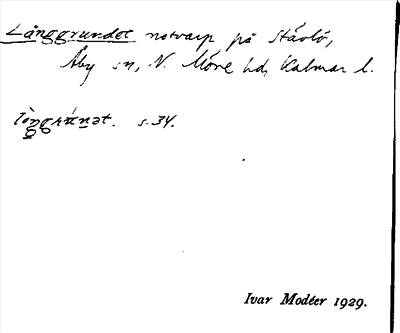 Långgrundet notvarp på Stävlö,
Åby sn, N. Möre hd, Kalmar l.
lòŋgrúnət. s. 34.
Ivar Modéer 1929.